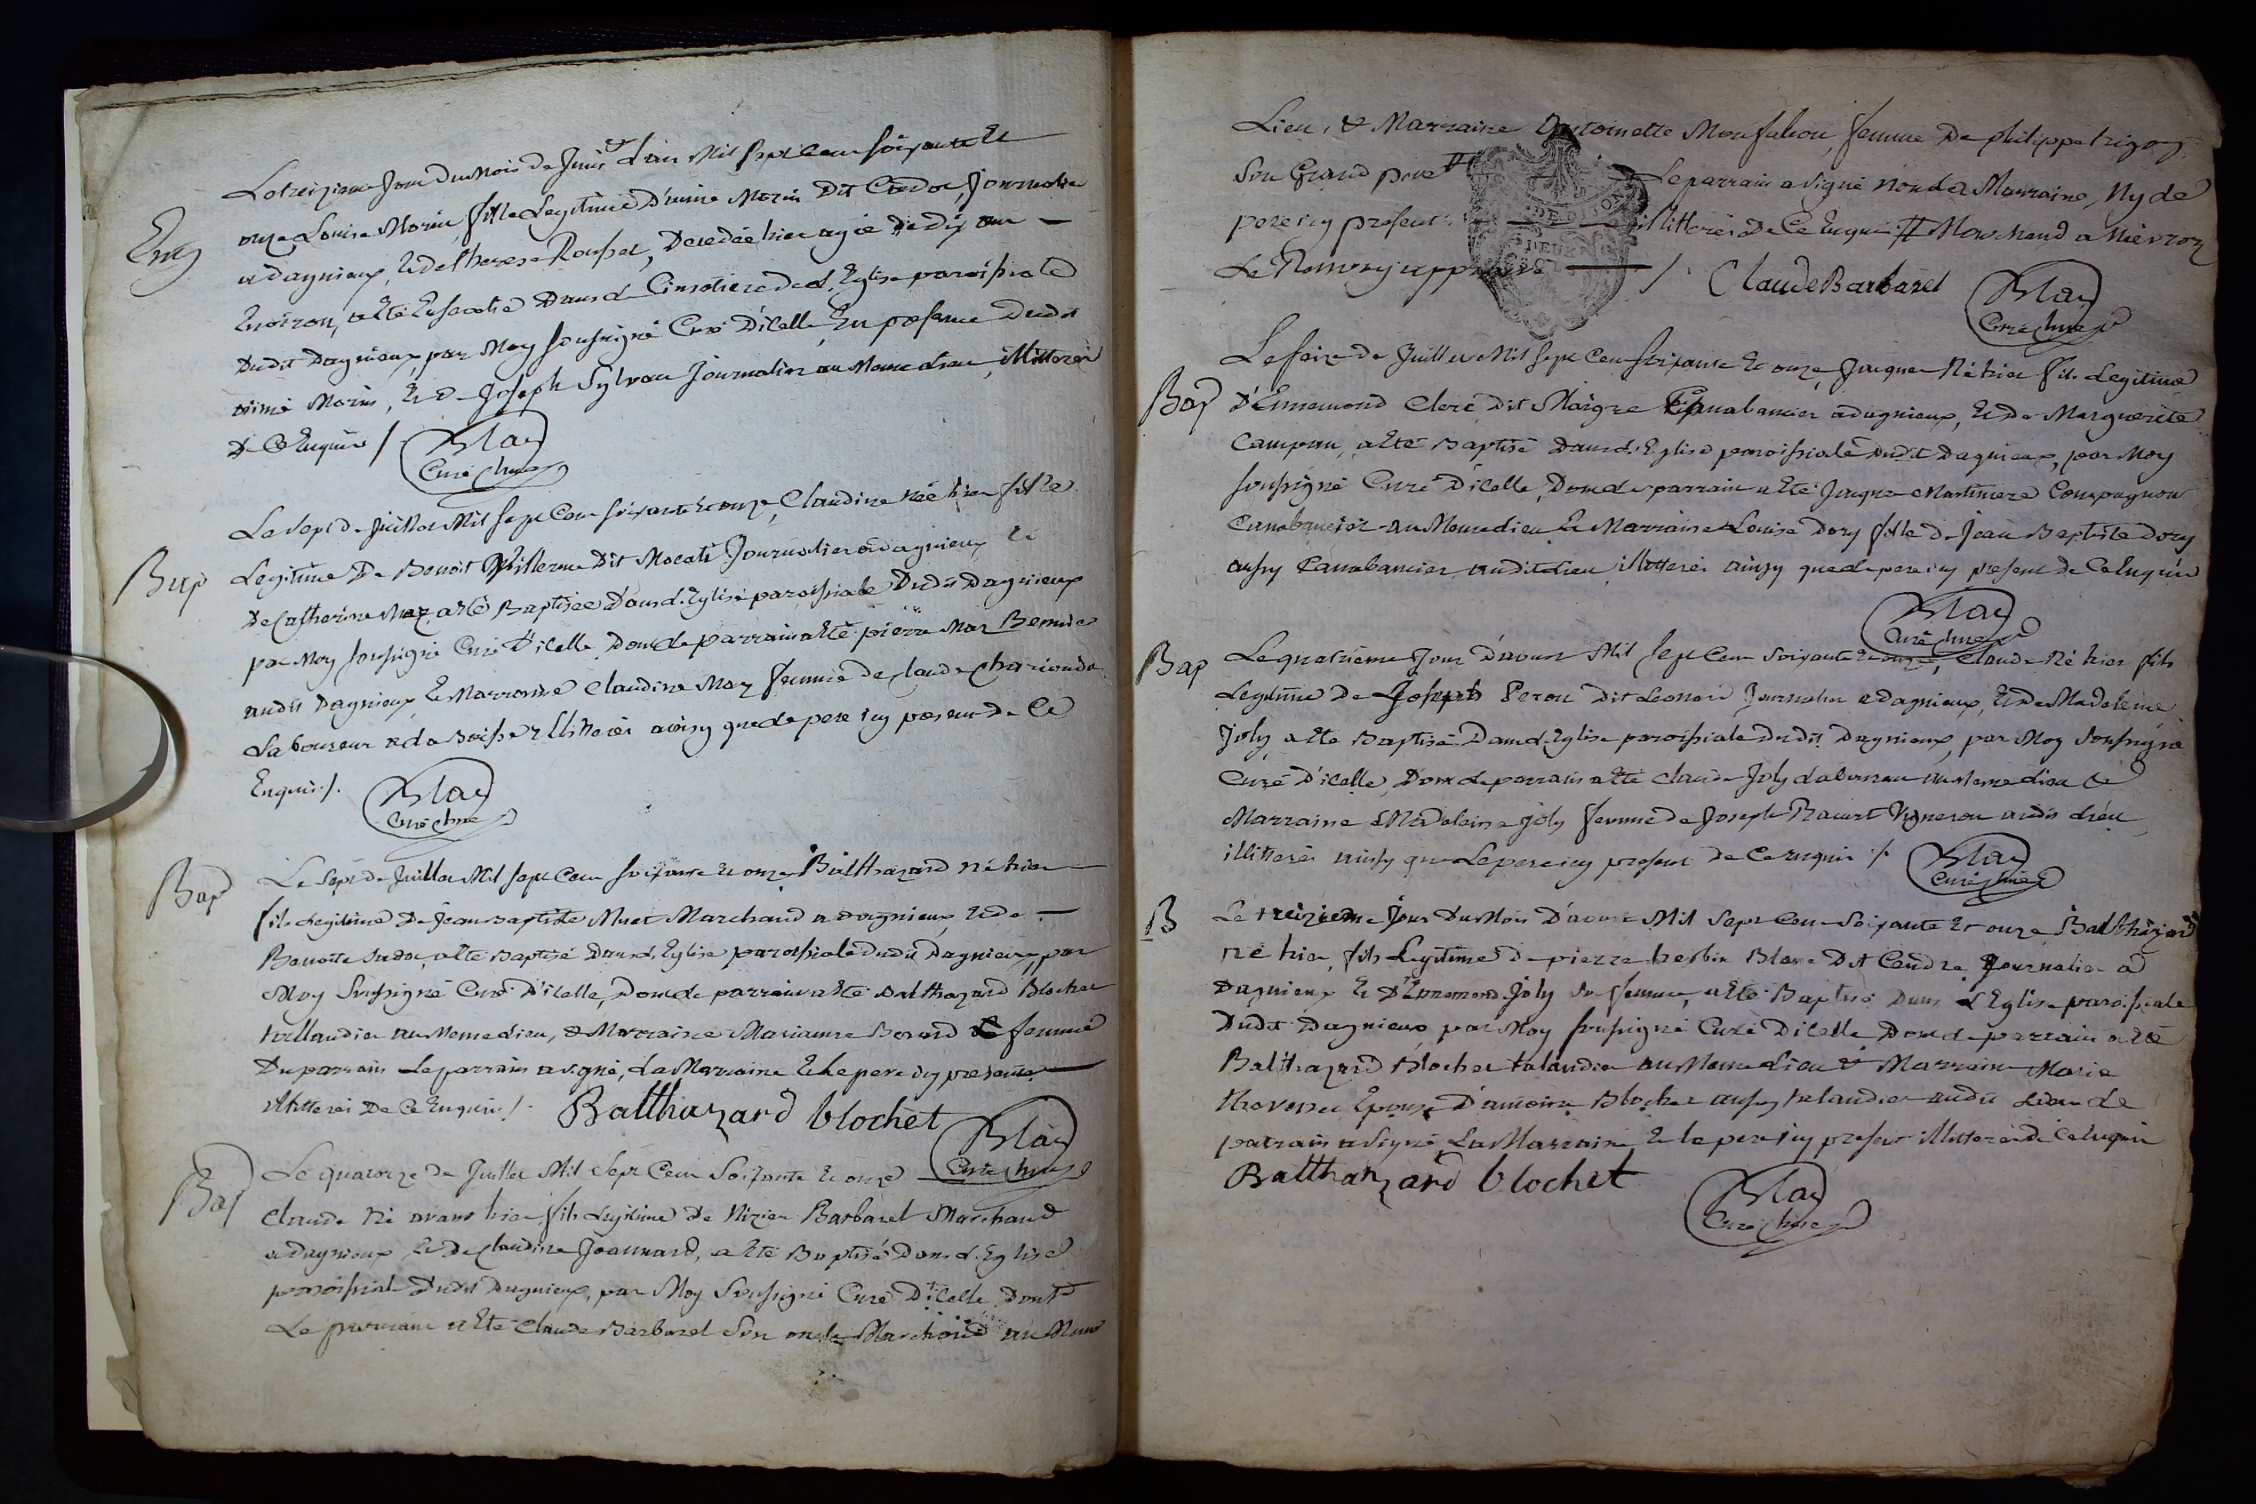 Le treizieme Jour du Mois de Juin & L'an Mil Sept Cent Soixante Et
Ent
onze Louise Morin fille Legitime D'aimé Morin Dit Cordoe, Journalier
a dagnieux, Et de Therese Rousset, Decedée hier agée de Dix ans
Environ, a Eté Ensevelie Dans Le Cimetiere de L'Eglise paroissiale
Dudit Dagnieux, par Moy soussigné Curé D'icelle En presence Dudit
aimé Morin, Et De Joseph Sylvan Journalier au Meme Lieu, illitterés
De Ce Enquis /.
Blay
Curé
Le Sept de Juillet Mil Sept Cent Soixante Et onze, Claudine née hier fille
Bap
Legitime De Benoit Guillerme Dit Mocati Journalier a dagnieux Et
De Catherine Maz, a Eté Baptisée Dans L'Eglise paroissiale Dudit Dagnieux
par Moy soussigné Curé D'icelle, Dont Le parrain a Eté pierre Maz
audit Dagnieux, Et Marraine Claudine Maz femme de Claude
Laboureur a La Boisse illitterés ainsy que Le pere icy present De Ce
Enquis /.
Blay
Curé
Le Sept de Juillet Mil Sept Cent Soixante Et onze, Balthazard né hier
Bap
fils Legitime De Jean Baptiste Muet Marchand a dagnieux, Et de
Benoite Juda, a Eté Baptisé Dans L'Eglise paroissiale dudit Dagnieux, par
Moy Soussigné Curé D'icelle, Dont Le parrain a Eté Balthazard Blochet
tallandier au Meme Lieu, & Marraine Marianne Berard femme
Du parrain Le parrain a signé, La Marraine Et Le pere icy present
illitterés De Ce Enquis /.
Balthazard blochet
Blay
Curé
Le quatorze de Juillet Mil Sept Cent Soixante Et onze
Bap
Claude Né avant hier fils Legitime De Nizier Barbaret Marchand
a dagnieux, Et De Claudine Joannard, a Eté Baptisé Dans L'Eglise
paroissiale Dudit Dagnieux, par Moy Soussigné Curé D'icelle, Dont
Le parrain a Eté Claude Barbaret Son oncle Marchand au Meme
Lieu, & Marraine Antoinette Monfalcon, femme De philippe
Son Grand pere # Le parrain a signé non La Marraine, Ny de
pere icy present illitterés De Ce Enquis # Marchand a
Le Renvoy approuvé /.
Claude Barbaret
Blay
Curé
Le seize de Juillet Mil Sept Cent Soixante Et onze, Jacques Né hier fils Legitime
Bap
D'Ennemond Cleré dit Maigre Canabassier a dagnieux, Et De Marguerite
Campan, a Eté Baptisé Dans L'Eglise paroissiale Dudit Dagnieux, par Moy
soussigné Curé D'icelle, Dont Le parrain a Eté Jaques Martiniere Compagnon
Canabassier au Meme Lieu Et Marraine Louise Dory fille De Jean Baptiste Dory
aussy Canabassier audit Lieu, illitterés ainsy que Le pere icy present de Ce Enquis
Blay
Curé
Le quatrieme Jour D'aoust Mil Sept Cent Soixante Et onze, Claude Né hier fils
Bap
Legitime De Joseph Peron Dit Leonard Journalier a Dagnieux, Et De Madeleine
Joly a Eté Baptisé Dans L'Eglise paroissiale Dudit Dagnieux, par Moy Soussigné
Curé D'icelle, Dont Le parrain a Eté Claude Joly Laboureur au Meme Lieu &
Marraine Madeleine Joly femme De Joseph Racurt Vigneron audit Lieu
illitterés ainsy que Le pere icy present de Ce enquis /.
Blay
Curé
B
Le treizieme Jour Du Mois D'aoust Mil Sept Cent Soixante Et onze Balthazard
né hier, fils Legitime De pierre herbin Blanc Dit Cendre Journalier a
Dagnieux Et D'Ennemonde Joly sa femme, a Eté Baptisé Dans L'Eglise paroissiale
Dudit Dagnieux, par Moy soussigné Curé D'icelle Dont Le parrain a Eté
Balthazard Blochet talandier au Meme Lieu & Marraine Marie
thevenet Epouse D'antoine Blochet aussy talandier audit Lieu Le
parrain a Signé, La Marraine Et le pere icy present illitterés de Ce Enquis
Balthazard blochet
Blay
Curé